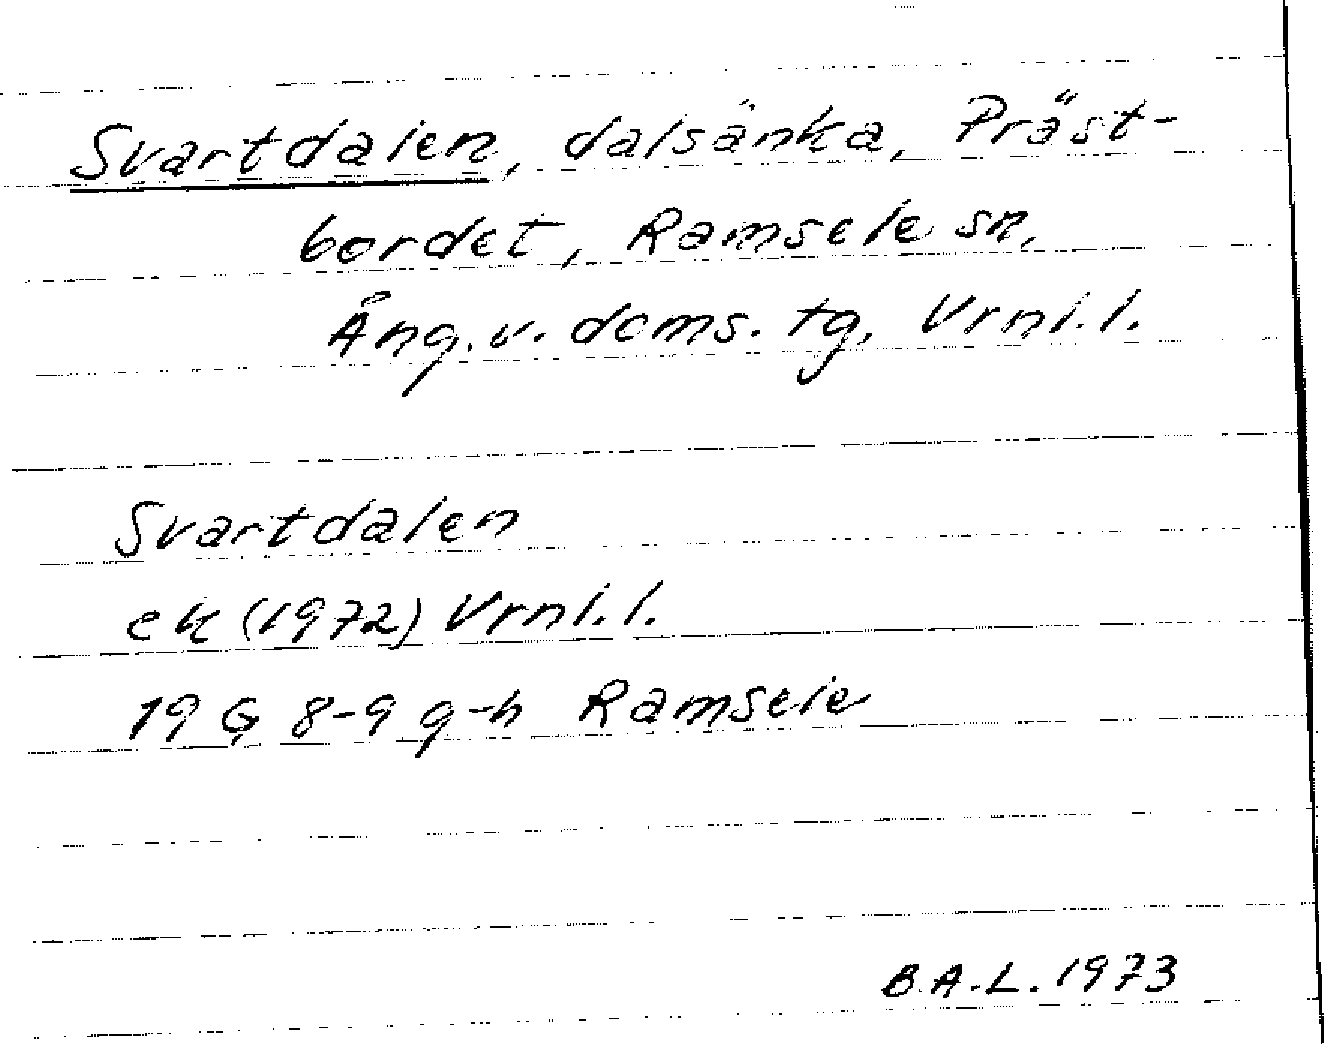 Svartdalen, dalsänka, Präst-
bordet, Ramsele sn,
Ång. v. doms. tg, Vrnl. l.
Svartdalen
ek (1972) Vrnl. l.
19 G 8-9 g-h Ramsele
B.A.L. 1973